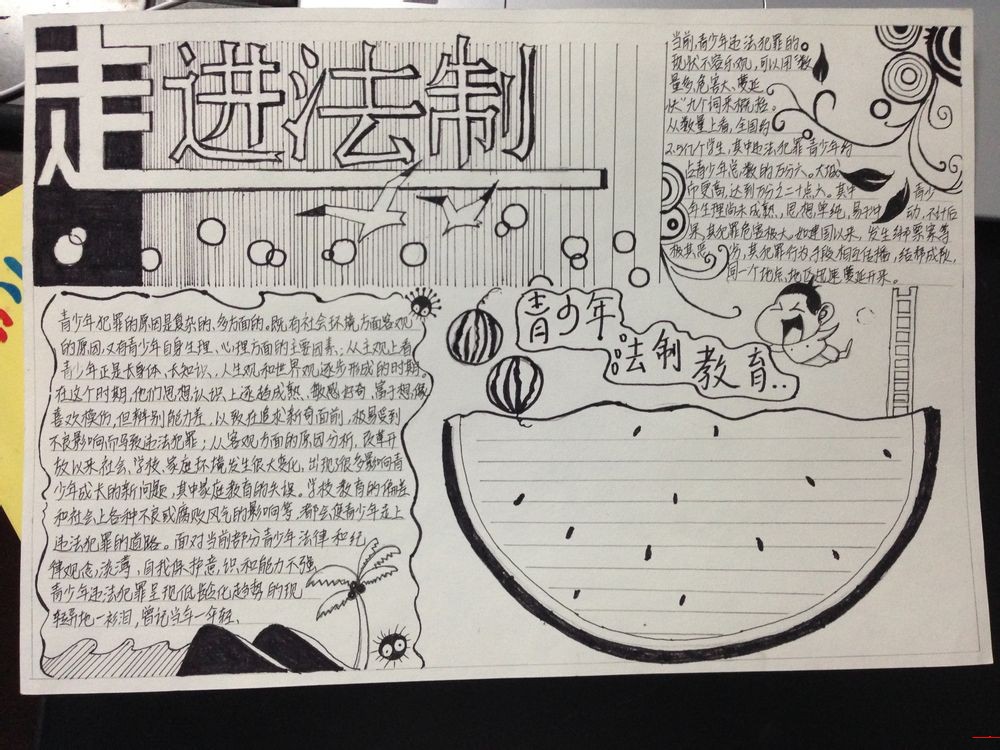 走进法制
当前,青少年违法犯罪的
现状不容乐观,可以用"数
量多、危害大、蔓延
快"九个词来概括。
从数量上看,全国约
2.5亿个学生,其中违法犯罪青少年约
占青少年总数的万分六。大城
市更高,达到万分之二十点六。其中 青少
年生理尚未成熟,思想单纯,易于冲 动,不计后
果,其犯罪危害极大。如建国以来,发生绑票案等
极其恶 劣,其犯罪行为手段相互传播,结帮成伙,
同一个地点、地 迅速蔓延开来。
青少年
法制教育..
青少年犯罪的原因是复杂的、多方面的。既有社会环境方面客观
的原因,又有青少年自身生理、心理方面的主要因素;从主观上看
青少年正是长身体、长知识、人生观和世界观逐步形成的时期。
在这个时期,他们思想认识上逐趋成熟、敏感好奇、富于想像
喜欢模仿,但辩别能力差,以致在追求新奇面前,极易受到
不良影响而导致违法犯罪;从客观方面的原因分析,改革开
放以来社会、学校、家庭环境发生很大变化,出现了很多影响青
少年成长的新问题,其中家庭教育的失误。学校教育的偏差
和社会上各种不良或腐败风气的影响等,都会使青少年走上
违法犯罪的道路。面对当前部分青少年法律和纪
律观念淡薄、自我保护意识和能力不强
青少年违法犯罪呈现低龄化趋势的现
轻弄地一衫泪,曾记当年一年轻、